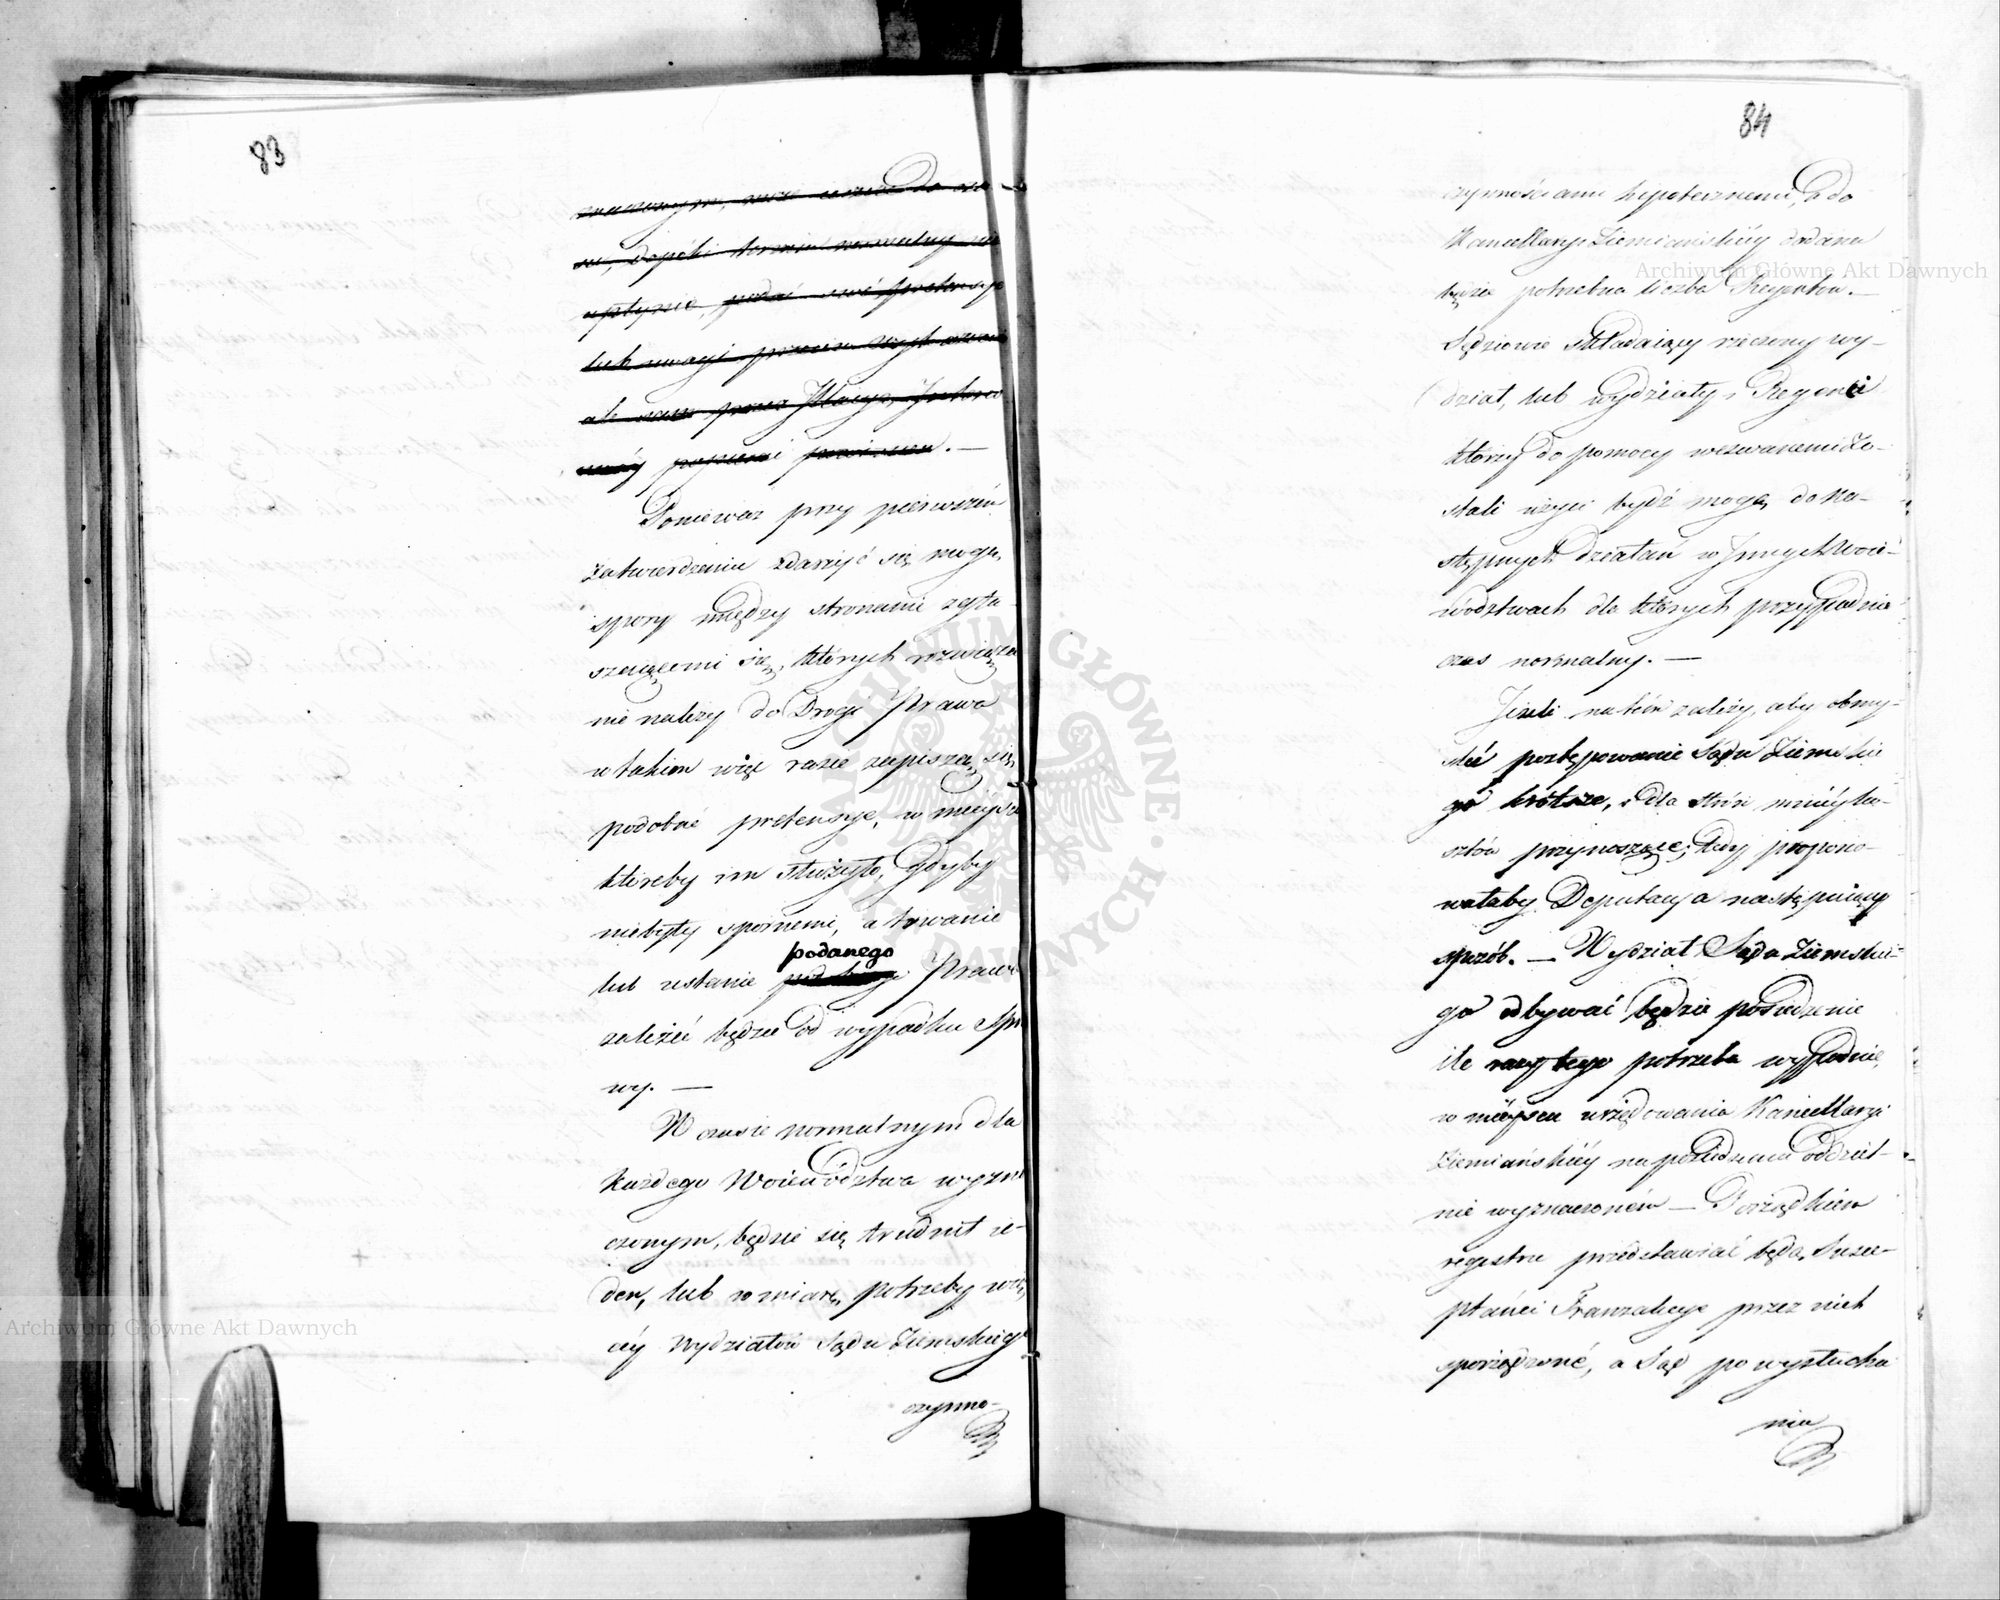 83
uptynie, podać swé pretensye
lub uwagi przeciw
ale sam przez
popierać powinien. —
Ponieważ przy pierwszém
zatwierdzeniu zdarzyć się mogą
spory między stronami zgła-
szaiącemi się, których rozwiąza
nie należy do Drogi Prawa
w takim więc razie zapiszą się
podobné pretensye, w mieyscu
któreby im służyło, gdyby
niebyły spornemi, a trwanie
podanego
lub ustanie Prawa
zależéć będzie od wypadku Spra
wy. —
W czasie normalnym dla
każdego Woiewództwa wyzna
czonym, będzie się trudnił ie-
den, lub w miarę potrzeby wię
céy Wydziałów Sądu Ziemskiego
czynno-
84
czynnościami hypotecznemi, a do
Kancellaryi Ziemiańskiéy dodana
będzie potrzebna liczba Reientów. —
Sędziowie składaiący rzeczony wy-
dział, lub wydziały, Regenci
którzy do pomocy wezwanemi zo-
stali użyci bydź mogą do na-
stępnych działań w Innych Woie-
wództwach dla których przypadnie
czas normalny. —
Jeżeli na tém zależy, aby obmy-
ślić postępowanie Sądu Ziemskie
go krótsze, i dla stron mniéy ko-
sztów przynoszące; tedy propono-
wałaby Deputacya następuiący
sposób. — Wydział Sądu Ziemskie-
go odbywać będzie posiedzenie
ile razy tego potrzeba wypadnie,
w mieyscu urzędowania Kancellaryi
Ziemiańskiéy na posiedzeniu oddziel-
nie wyznaczoném — Porządkiem
regestru przedstawiać będą Susce-
ptanci Tranzakcye przez nich
sporządzoné, a Sąd po wysłucha
niu
Archiwum Główne Akt Dawnych
Archiwum Główne Akt Dawnych
ARCHIWUM GŁÓWNE AKT DAWNYCH